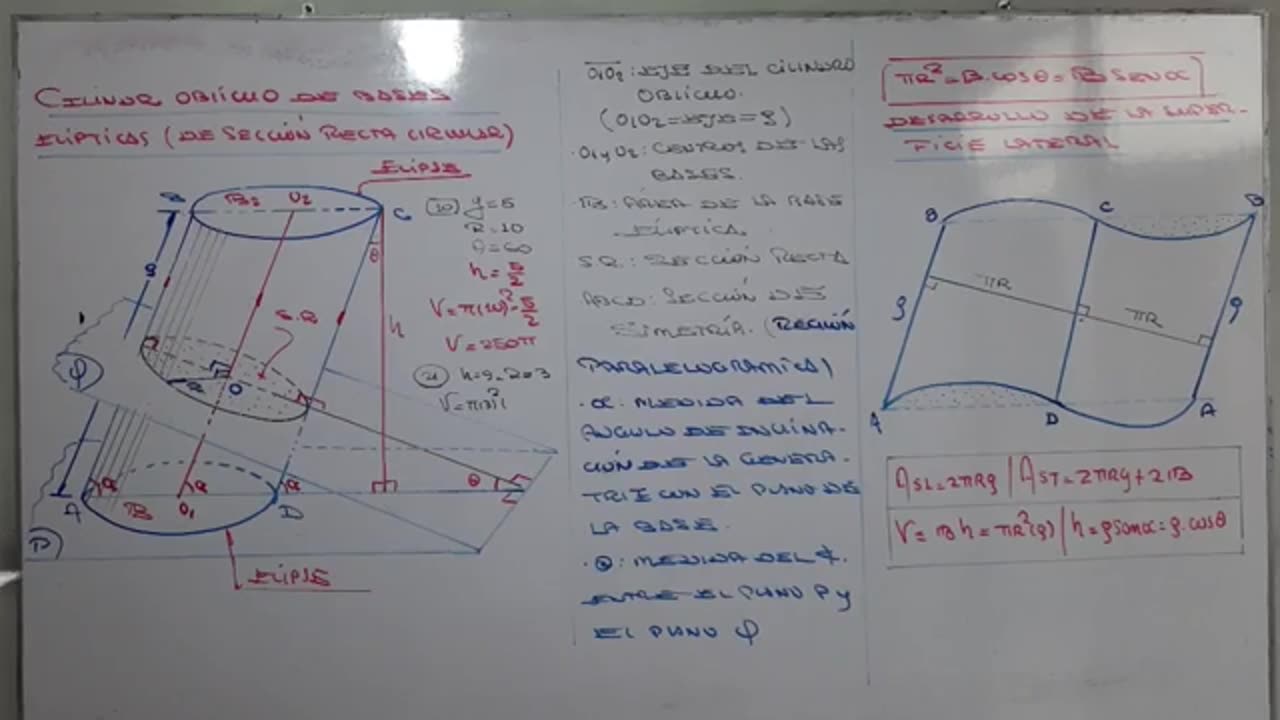 CILINDR OBLICUO DE BASES
ELÍPTICAS (DE SECCIÓN RECTA CIRCULAR)
ELIPSE
B B2 O2 C
g
θ
h
S.R
φ
R O
A α B O1 α D α θ
P
ELIPSE
10 g=5
R=10
θ=60
h=5/2
V=π(10)²·5/2
V=250π
h=g-2=3
O1O2: EJE DEL CILINDRO
OBLICUO.
(O1O2=EJE=g)
·O1 y O2: CENTROS DE LAS
BASES.
·B: ÁREA DE LA BASE
ELÍPTICA.
S.R.: SECCIÓN RECTA
ABCD: SECCIÓN DE
SIMETRÍA. (REGIÓN
PARALELOGRAMICA)
·α: MEDIDA DEL
ANGULO DE INCLINA-
CIÓN DE LA GENERA-
TRIZ CON EL PLANO DE
LA BASE.
·θ: MEDIDA DEL ∢.
ENTRE EL PLANO P y
EL PLANO φ
πR²=B.cosθ=B senα
DESARROLLO DE LA SUPER-
FICIE LATERAL
B C B
πR
g πR g
A D A
ASL=2πRg / AST=2πRg+2B
V=Bh=πR²(g) / h=g senα=g.cosθ